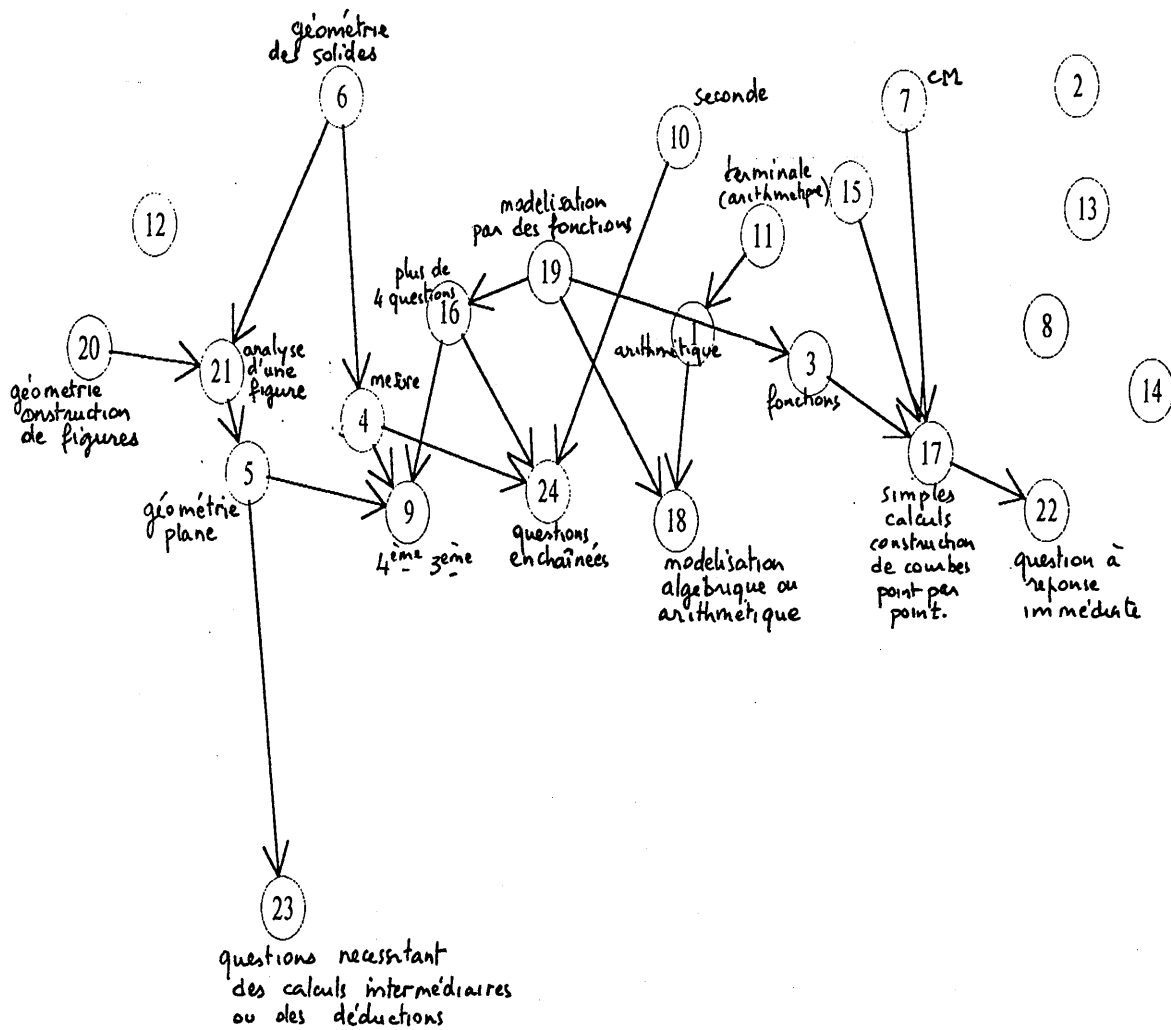 géométrie
des solides
6
seconde
10
CM
7
2
12
modélisation
par des fonctions
19
terminale
(arithmétique)
11
15
13
plus de
4 questions
16
20
géométrie
construction
de figures
21
analyse
d'une
figure
1
arithmétique
3
fonctions
8
14
4
5
géométrie
plane
9
4ème 3ème
24
questions
enchaînées
18
modélisation
algébrique ou
arithmétique
17
simples
calculs
construction
de courbes
point par
point.
22
question à
réponse
immédiate
23
questions necessitant
des calculs intermédiaires
ou des déductions